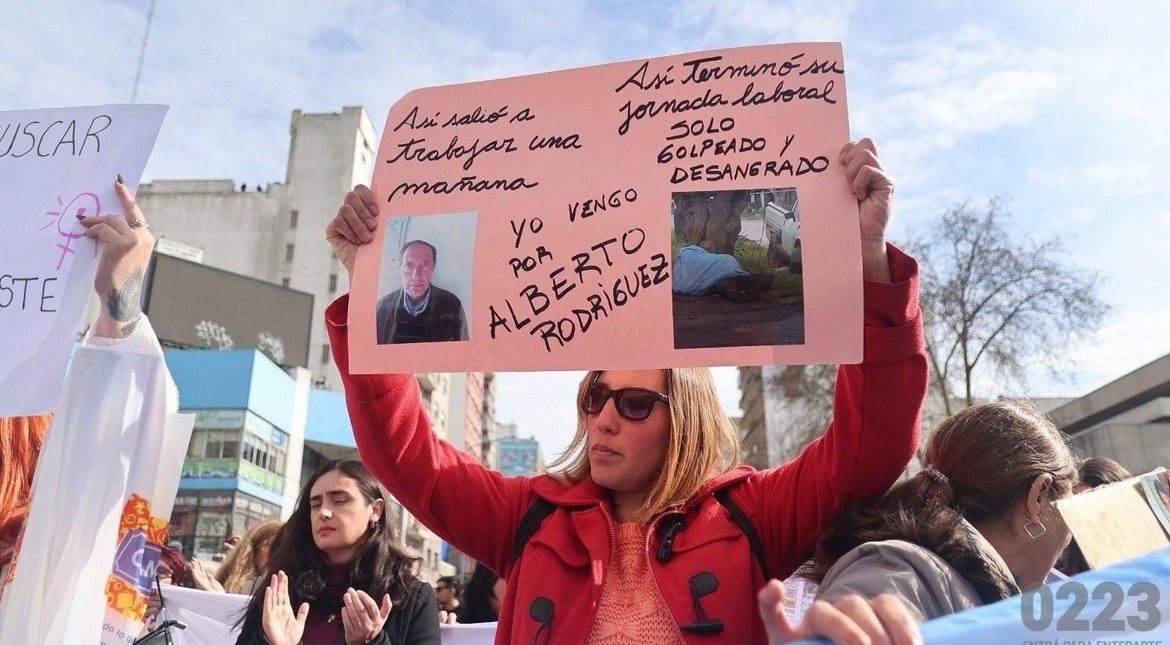 USCAR
STE
Así salió a
trabajar una
mañana
YO VENGO
POR
ALBERTO
RODRIGUEZ
Así terminó su
jornada laboral
SOLO
GOLPEADO Y
DESANGRADO
0223
ENTRÁ PARA ENTERARTE